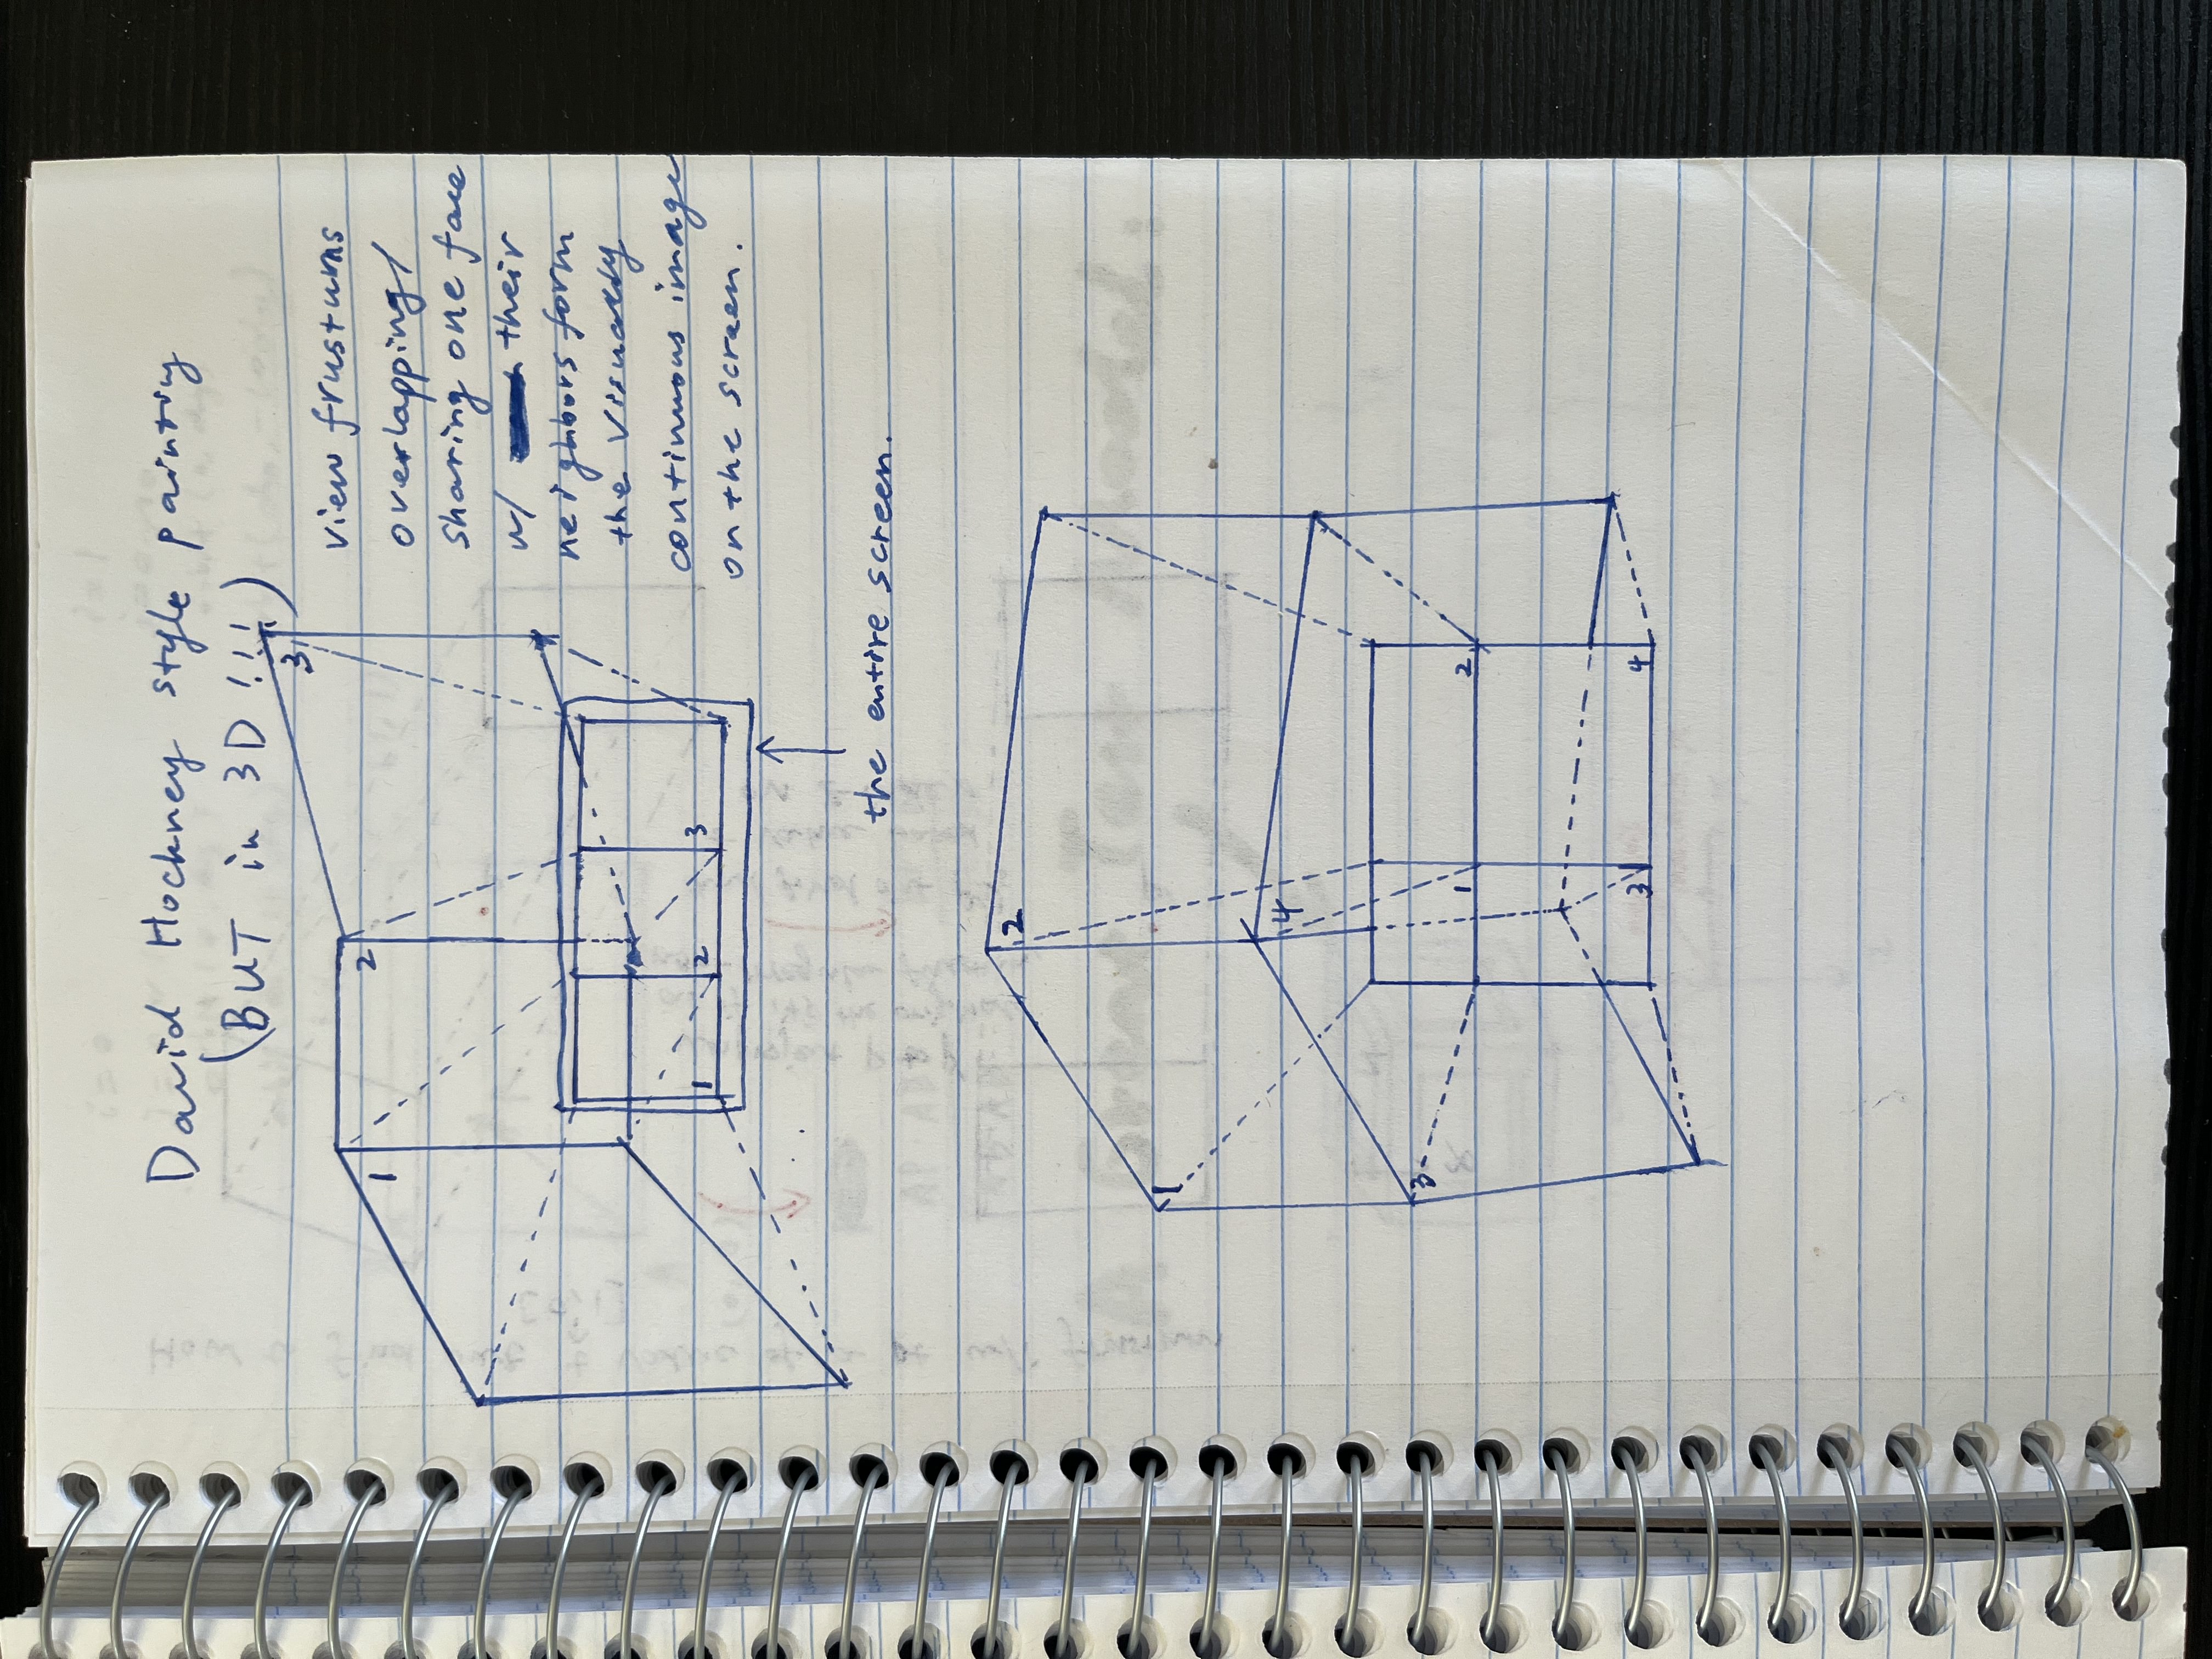 David Hockney style painting
(BUT in 3D !!!)
view frustums
overlapping/
sharing one face
w/ their
neighbors form
the visually
continuous image
on the screen.
1
2
3
1
2
3
the entire screen.
2
1
4
3
1
2
3
4